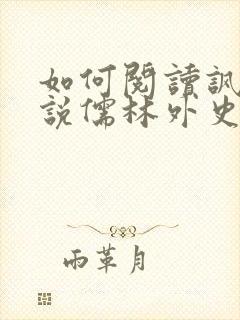 如何閱讀諷
說儒林外史
雨革月